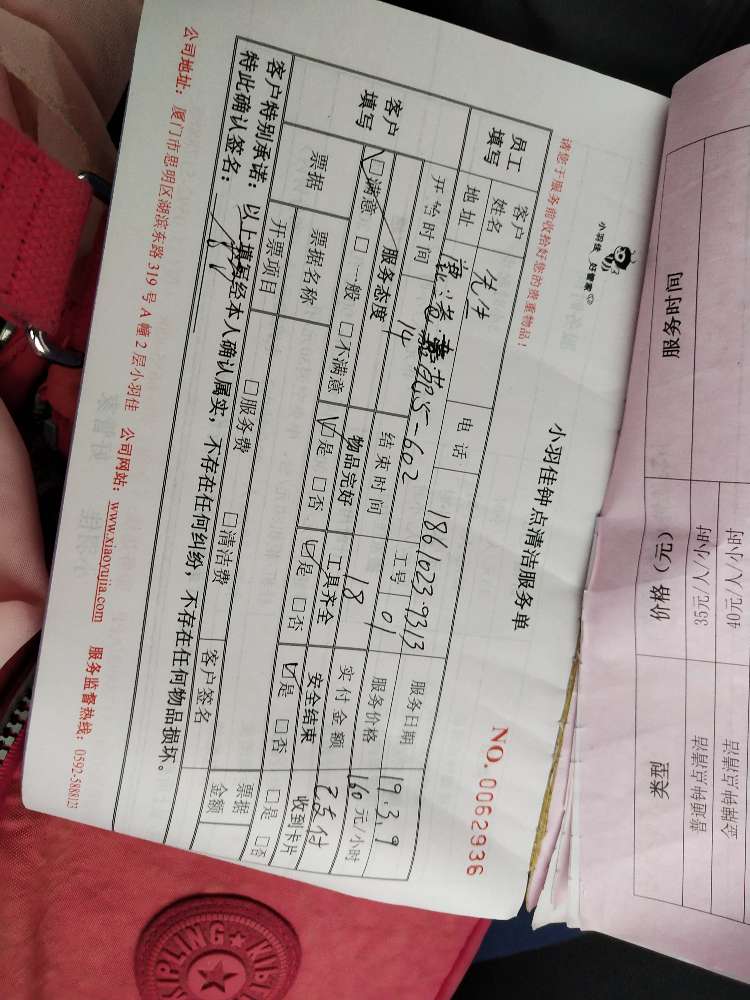 小羽佳 好管家
小羽佳钟点清洁服务单
请您于服务前收拾好您的贵重物品！
NO. 0062936
员工填写
客户姓名 先生 电话 1861023·9313 服务日期 19.3.9
地址 5-602 工号 01 服务价格 160 元/小时
开始时间 14 结束时间 18 实付金额 已支付
客户填写
服务态度 物品完好 工具齐全 安全结束 收到卡片
☑满意 □一般 □不满意 ☑是 □否 ☑是 □否 ☑是 □否 □是 □否
票据 票据名称 客户签名 票据金额
开票项目 □服务费 □清洁费
客户特别承诺：以上填写经本人确认属实，不存在任何纠纷，不存在任何物品损坏。
特此确认签名：
公司地址：厦门市思明区湖滨东路 319 号 A 幢 2 层小羽佳 公司网站：www.xiaoyujia.com 服务监督热线：0592-5888123
服务时间 价格（元） 类型
35元/人/小时 普通钟点清洁
40元/人/小时 金牌钟点清洁
KIPLING